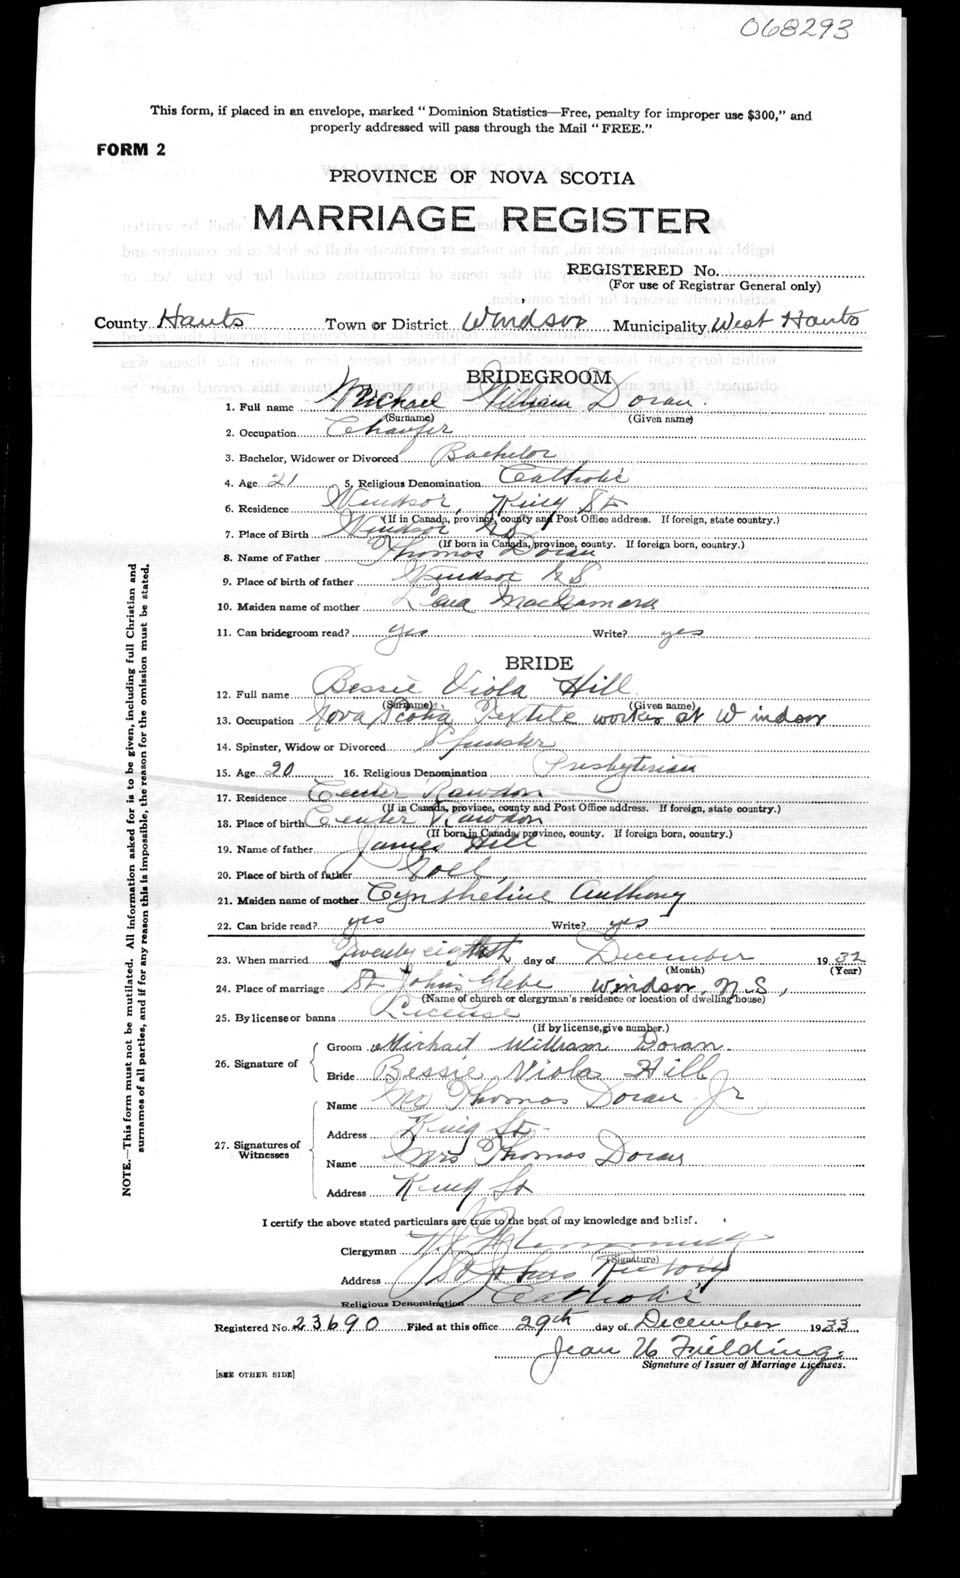 068293
This form, if placed in an envelope, marked "Dominion Statistics—Free, penalty for improper use $300," and
properly addressed will pass through the Mail "FREE."
FORM 2
PROVINCE OF NOVA SCOTIA
MARRIAGE REGISTER
REGISTERED No.
(For use of Registrar General only)
County Hants Town or District Windsor Municipality West Hants
BRIDEGROOM
1. Full name Michael William Doran
(Surname) (Given name)
2. Occupation Chaufer
3. Bachelor, Widower or Divorced Bachelor
4. Age 21 5. Religious Denomination Catholic
6. Residence Windsor, King St
(If in Canada, province, county and Post Office address. If foreign, state country.)
7. Place of Birth Windsor NS
(If born in Canada, province, county. If foreign born, country.)
8. Name of Father Thomas Doran
9. Place of birth of father Windsor NS
10. Maiden name of mother Lena MacNamara
11. Can bridegroom read? yes Write? yes
BRIDE
12. Full name Bessie Viola Hill
(Surname) (Given name)
13. Occupation Nova Scotia Textile worker at Windsor
14. Spinster, Widow or Divorced Spinster
15. Age 20 16. Religious Denomination Presbyterian
17. Residence Center Rawdon
(If in Canada, province, county and Post Office address. If foreign, state country.)
18. Place of birth Center Rawdon
(If born in Canada, province, county. If foreign born, country.)
19. Name of father James Hill
20. Place of birth of father Noel,
21. Maiden name of mother Cyntheline Anthony
22. Can bride read? yes Write? yes
23. When married Twenty eight day of December 1932
(Month) (Year)
24. Place of marriage St John's Glebe Windsor, N.S,
(Name of church or clergyman's residence or location of dwelling house)
25. By license or banns License
(If by license, give number.)
26. Signature of
Groom Michael William Doran.
Bride Bessie Viola Hill
27. Signatures of Witnesses
Name Mr Thomas Doran Jr
Address King St
Name Mrs Thomas Doran
Address King St
I certify the above stated particulars are true to the best of my knowledge and belief.
Clergyman
(Signature)
Address St Johns Rectory
Religious Denomination Catholic
Registered No. 23690 Filed at this office 29th day of December 1933
Jean Fielding
Signature of Issuer of Marriage Licenses.
[SEE OTHER SIDE]
NOTE.—This form must not be mutilated. All information asked for is to be given, including full Christian and
surnames of all parties, and if for any reason this is impossible, the reason for the omission must be stated.